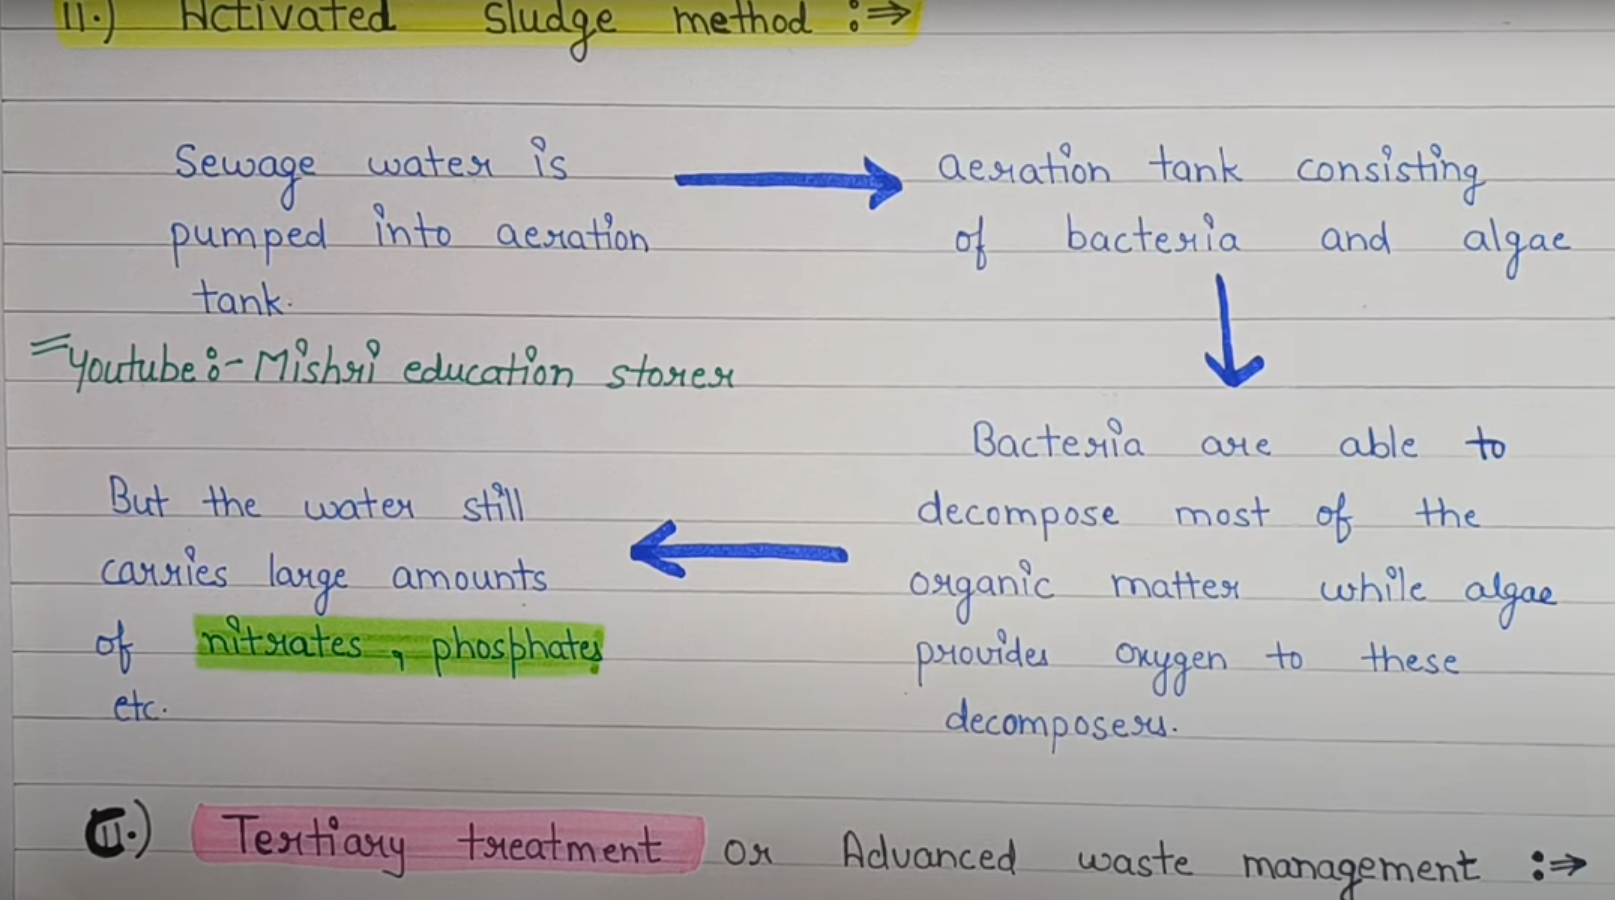 II.) Activated sludge method :⇒
Sewage water is
pumped into aeration
tank.
aeration tank consisting
of bacteria and algae
Youtube :- Mishri education storer
Bacteria are able to
decompose most of the
organic matter while algae
provides oxygen to these
decomposers.
But the water still
carries large amounts
of nitrates, phosphates
etc.
C.) Tertiary treatment or Advanced waste management :⇒